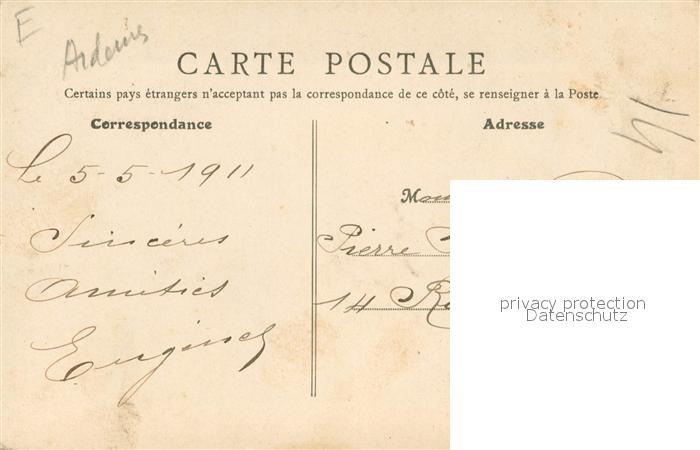 E
Ardennes
CARTE POSTALE
Certains pays étrangers n'acceptant pas la correspondance de ce côté, se renseigner à la Poste
Correspondance
Adresse
Le 5-5-1911
Sincères
Amitiés
M
Pierre
14 R
privacy protection
Datenschutz